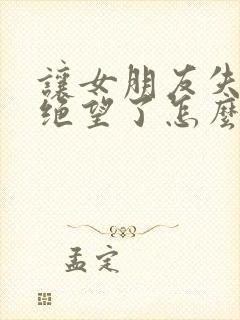 讓女朋友失
绝望了怎麼
孟定